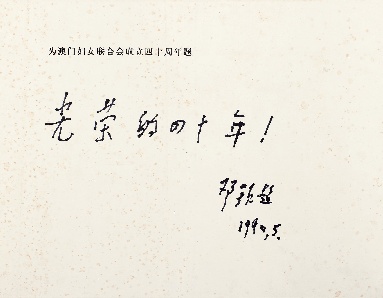 为澳门妇女联合会成立四十周年题
光荣的四十年！
邓颖超
1990.5.